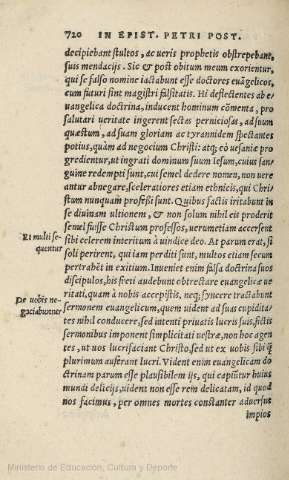 720 IN EPIST. PETRI POST.
decipiebant stultos, ac ueris prophetis obstrepebant,
suis mendacijs. Sic & post obitum meum exorientur,
qui se falso nomine iactabunt esse doctores euãgelicos,
cum futuri sint magistri falsitatis. Hi deflectentes ab e-
uangelica doctrina, inducent hominum cõmenta, pro
salutari ueritate ingerent sectas perniciosas, ad suum
quæstum, ad suam gloriam ac tyrannidem spectantes
potius, quàm ad negocium Christi: atq; eò uesaniæ pro
gredientur, ut ingrati dominum suum Iesum, cuius san
guine redempti sunt, cui semel dedere nomen, non uere
antur abnegare, sceleratiores etiam ethnicis, qui Chri
stum nunquàm professi sunt. Quibus factis irritabunt in
se diuinam ultionem, & non solum nihil eis proderit
semel fuisse Christum professos, uerumetiam accersent
Et multi se-
quentur
sibi celerem interitum à uindice deo. At parum erat, si
soli perirent, qui iam perditi sunt, multos etiam secum
pertrahẽt in exitium. Inuenient enim falsa doctrina suos
discipulos, his freti audebunt obtrectare euangelicæ ue
De uobis ne-
gociabuntur
ritati, quam à nobis accepistis, neq; syncere tractabunt
sermonem euangelicum, quem uident ad suas cupidita
tes nihil conducere, sed intenti priuatis lucris suis, fictis
sermonibus imponent simplicitati uestræ, non hoc agen
tes, ut uos lucrifaciant Christo, sed ut ex uobis sibi q̃
plurimum auferant lucri. Vident enim euangelicam do
ctrinam parum esse plausibilem ijs, qui capiũtur huius
mundi delicijs, uident non esse rem delicatam, id quod
nos facimus, per omnes mortes constanter aduersus
impios
Ministerio de Educación, Cultura y Deporte